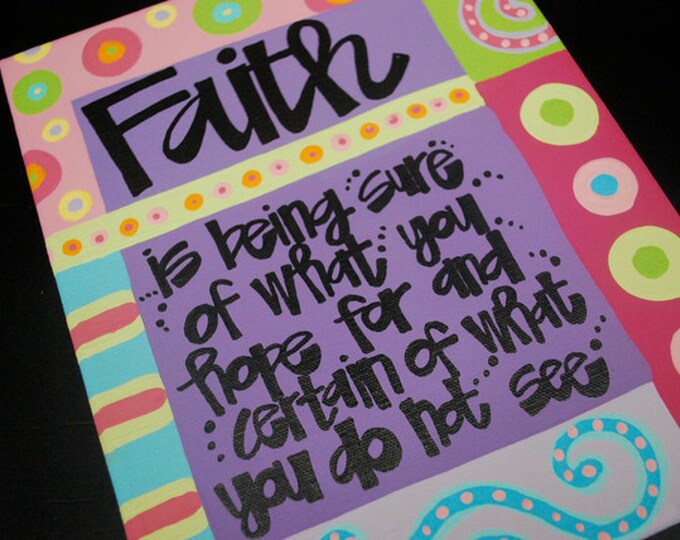 Faith
is being sure
of what you
hope for and
certain of what
you do not see